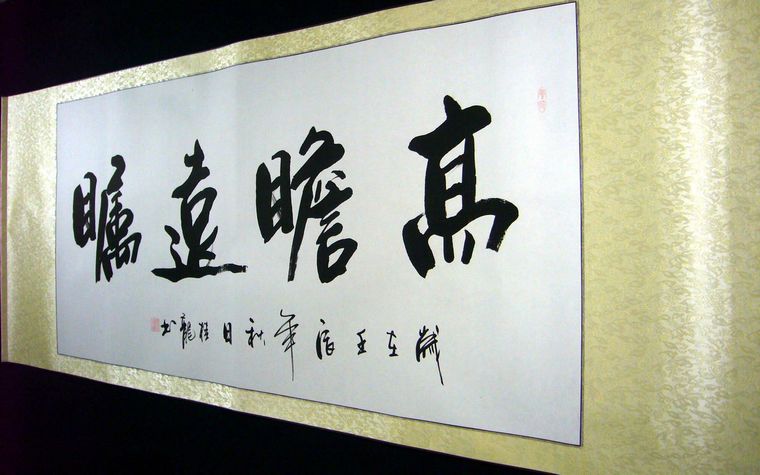 高瞻遠矚
歲在壬辰年秋日桂龍书